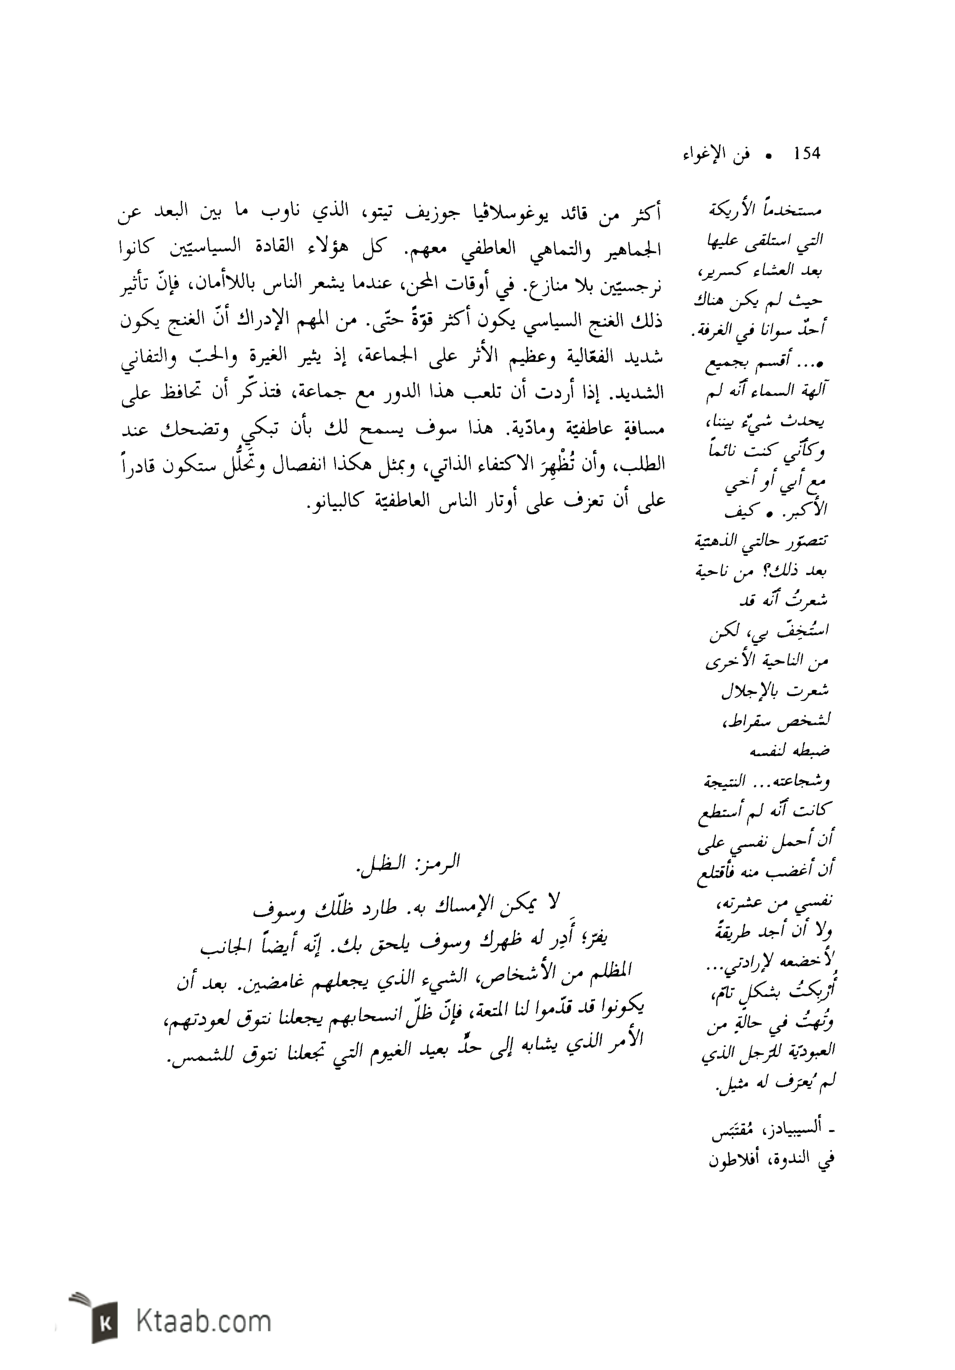 154 • فن الإغواء
أكثر من قائد يوغوسلافيا جوزيف تيتو، الذي ناوب ما بين البعد عن
الجماهير والتماهي العاطفي معهم. كل هؤلاء القادة السياسيّين كانوا
نرجسيّين بلا منازع. في أوقات المحن، عندما يشعر الناس باللاأمان، فإنّ تأثير
ذلك الغنج السياسي يكون أكثر قوّةً حتّى. من المهم الإدراك أنّ الغنج يكون
شديد الفعّالية وعظيم الأثر على الجماعة، إذ يثير الغيرة والحبّ والتفاني
الشديد. إذا أردت أن تلعب هذا الدور مع جماعة، فتذكّر أن تحافظ على
مسافةٍ عاطفيّة ومادّية. هذا سوف يسمح لك بأن تبكي وتضحك عند
الطلب، وأن تُظْهِرَ الاكتفاء الذاتي، وبمثل هكذا انفصال وتَحَلُّل ستكون قادراً
على أن تعزف على أوتار الناس العاطفيّة كالبيانو.
الرمز: الظل.
لا يمكن الإمساك به. طارد ظلّك وسوف
يفرّ؛ أَدِر له ظهرك وسوف يلحق بك. إنّه أيضاً الجانب
المظلم من الأشخاص، الشيء الذي يجعلهم غامضين. بعد أن
يكونوا قد قدّموا لنا المتعة، فإنّ ظلّ انسحابهم يجعلنا نتوق لعودتهم،
الأمر الذي يشابه إلى حدٍّ بعيد الغيوم التي تجعلنا نتوق للشمس.
مستخدماً الأريكة
التي استلقى عليها
بعد العشاء كسرير،
حيث لم يكن هناك
أحدٌ سوانا في الغرفة.
•... أقسم بجميع
آلهة السماء أنّه لم
يحدث شيءٌ بيننا،
وكأنّي كنت نائماً
مع أبي أو أخي
الأكبر. • كيف
تتصوّر حالتي الذهنيّة
بعد ذلك؟ من ناحية
شعرتُ أنّه قد
استُخِفّ بي، لكن
من الناحية الأخرى
شعرت بالإجلال
لشخص سقراط،
ضبطه لنفسه
وشجاعته... النتيجة
كانت أنّه لم أستطع
أن أحمل نفسي على
أن أغضب منه فأقتلع
نفسي من عشرته،
ولا أن أجد طريقةً
لأخضعه لإرادتي...
أُرْبِكتُ بشكل تامّ،
وتُهتُ في حالةٍ من
العبوديّة للرّجل الذي
لم يُعرَف له مثيل.
ـ ألسيبيادز، مُقتَبَس
في الندوة، أفلاطون
K Ktaab.com